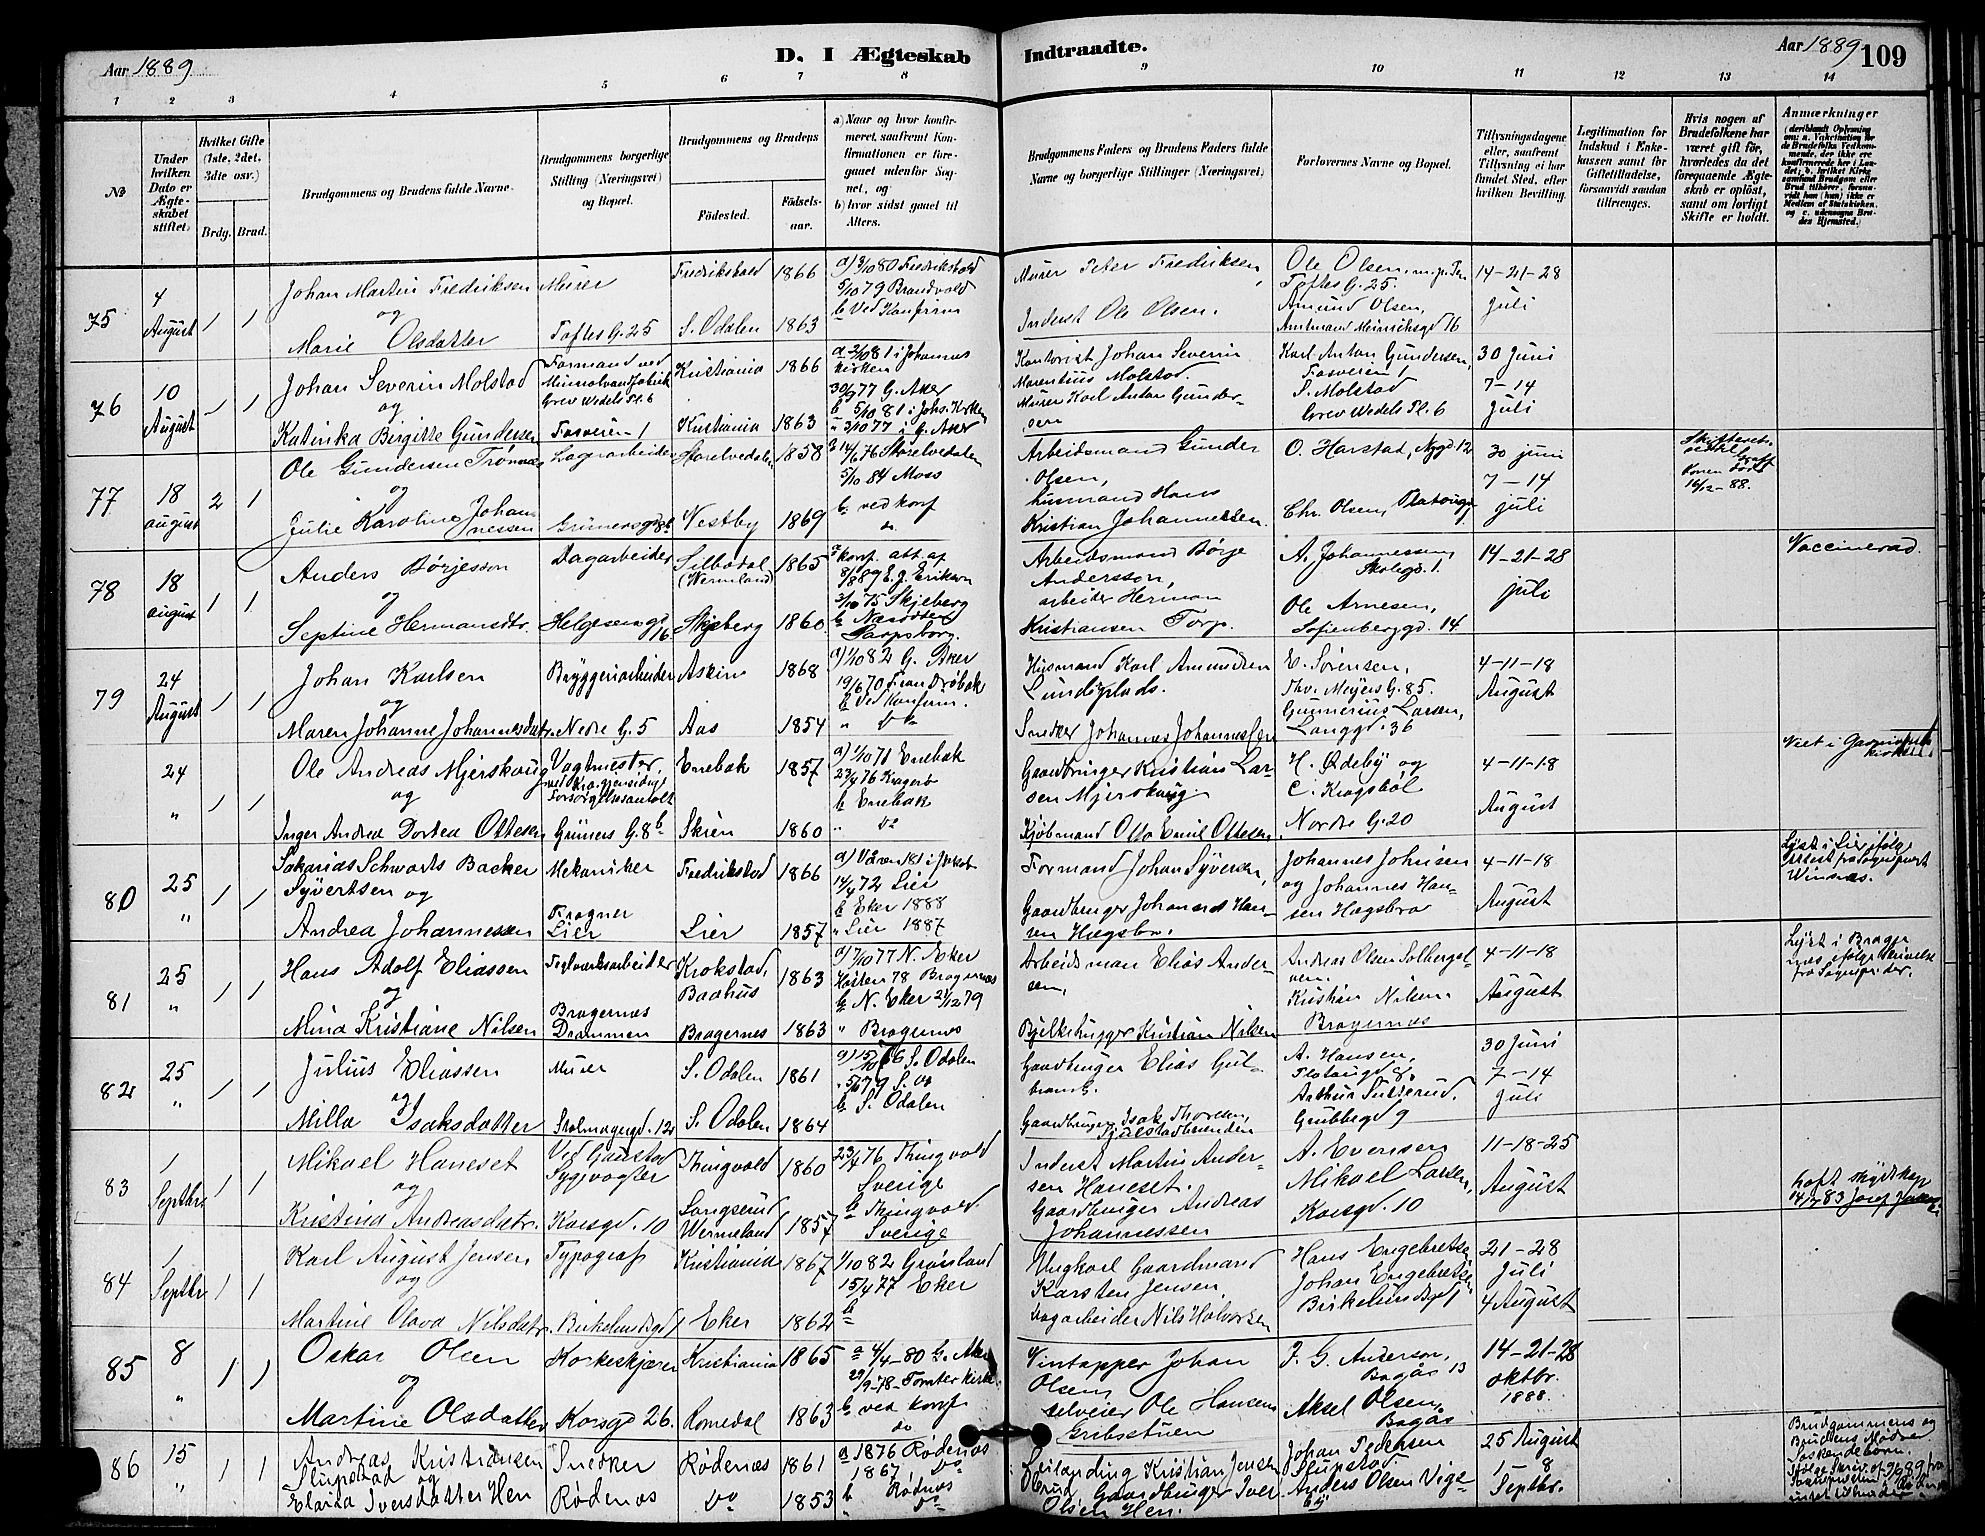 Aar 1889
D. I Ægteskab
Indtraadte.
Aar 1889
109
1 2 3 4 5 6 7 8 9 10 11 12 13 14
No
Under hvilken Dato er Ægteskabet stiftet.
Hvilket Gifte (1ste, 2det, 3die osv.)
Brdg. Brud.
Brudgommens og Brudens fulde Navne.
Brudgommens borgerlige Stilling (Næringsvei) og Bopæl.
Brudgommens og Brudens
Fødested.
Fødsels-aar.
a) Naar og hvor konfirmeret, saafremt Konfirmationen er foregaaet udenfor Sognet, og
b) hvor sidst gaaet til Alters.
Brudgommens Faders og Brudens Faders fulde Navne og borgerlige Stillinger (Næringsvei)
Forlovernes Navne og Bopæl.
Tillysningsdagene eller, saafremt Tillysning ei har fundet Sted, efter hvilken Bevilling.
Legitimation for Indskud i Enkekassen samt for Giftetilladelse, forsaavidt saadan tiltrænges.
Hvis nogen af Brudefolkene har været gift før, hvorledes da det foregaaende Ægteskab er opløst, samt om lovligt Skifte er holdt.
Anmærkninger
75
4 August
1 1
Johan Martin Fredriksen
og
Marie Olsdatter
Murer
Toftes G. 25
Fredrikshald 1866
S. Odalen 1863
a) 3/10 80 Fredrikshald
5/10 79 Brandvold
b Ved Konfirm
Murer Peter Fredriksen,
Inderst Ole Olsen.
Ole Olsen
Toftes G. 25.
Amund Olsen,
Amtmand Meinichsgd 16
14-21-28
Juli
76
10 August
1 1
Johan Severin Molstad
og
Katinka Birgitte Gundersen
Formand ved
Grev Wedels Pl. 6
Fosveien 1
Kristiania 1866
Kristiania 1863
a 2/10 81 i Johannes kirken
30/9 77 G. Aker
b 5/10 81 i Johs. Kirken
" 3/10 77 i G. Aker
Kontorist Johan Severin
Marentius Molstad.
Murer Karl Anton Gundersen
Karl Anton Gundersen,
Fosveien 1
S. Molstad
Grev Wedels Pl. 6
30 Juni
7-14
Juli
77
18 august
2 1
Ole Gundersen Trønnæs
og
Julie Karoline Johannessen
Lagerarbeider
Grünersgd 8b
Storelvedalen 1858
Vestby 1869
14/6 76 Storelvedalen
5/10 84 Moss
b. ved konf
do
Arbeidsmand Gunder
Olsen,
husmand Hans
Kristian Johannessen.
O. Harstad, Nygd 12
Chr. Olsen, Platousgd
30 juni
7-14
juli
Konen død
16/12-88.
78
18 august
1 1
Anders Börjesson
og
Septine Hermansdtr.
Dagarbeider
Helgesensgd 16
Silbodal (Wermland) 1865
Skjeberg 1860
konf. att. af
8/8 89 E. J. Erikson
3/10 75 Skjeberg
b Næsodden
Sarpsborg.
Arbeidsmand Börje
Andersson,
arbeider Herman
Kristiansen Torp.
A. Johannessen,
Skolegd. 1.
Ole Arnesen,
Sofienberggd. 14
14-21-28
juli
Vaccinerad.
79
24 August
1 1
Johan Karlsen
og
Maren Johanne Johannesdatr.
Bryggeriarbeider
Nedre G. 5
Askim 1868
Aas 1854
a) 1/10 82 G. Aker
19/6 70 Fran Drøbak
b Ved Konfirm.
" do
Husmand Karl Amundsen
Lundsplads.
Snedker Johannes Johannessen
E. Sørensen,
Thv. Meyers G. 85.
Gunnerius Larsen,
Langgd. 36
4-11-18
August
24
"
1 1
Ole Andreas Mjerskaug
og
Inger Andrea Dortea Ottesen
Vagtmester
Forsørgelsesanstalt
Grüners G. 8b
Enebak 1857
Skien 1860
a) 1/10 71 Enebak
23/4 76 Kragerø
b Enebak
" do
Gaardbruger Kristian Larsen Mjerskaug
Kjøbmand Otto Emil Ottesen
H. Ødeby og
C. Krogsbøl
Nordre G. 20
4-11-18
August
Viet i Garnisons kirken
80
25
"
1 1
Sakarias Schwarts Backer
Syvertsen og
Andrea Johannessen
Mekaniker
Frogner
Lier
Fredrikstad 1866
Lier 1857
a) Våren 181
14/4 72 Lier
b Eker 1888
" Lier 1887
Formand Johan Syversen,
Gaardbruger Johannes Hansen Hægsbro.
Johannes Johnsen
og Johannes Hansen Hægsbro
4-11-18
August
Lyst i Lier ifølge
attest fra Sognepræst
Winsnes.
81
25
"
1 1
Hans Adolf Eliassen
og
Mina Kristiane Nilsen
Teglværksarbeider
Bragernes
Drammen
Krokstad, Baahus 1863
Bragernes 1863
a) 7/10 77 N. Eker
Høsten 78 Bragernes
b N. Eker 21/12 79
" Bragernes
Arbeidsman Elias Andersen,
Bjelkehugger Kristian Nilsen
Andreas Olsen Solbergelven
Kristian Nilsen
Bragernæs
4-11-18
August
Lyst i Bragernæs ifølge skrivelse
fra Sognepr. der.
82
25
"
1 1
Julius Eliassen
og
Milla Isaksdatter
Murer
Stolmagergd. 12
S. Odalen 1861
S. Odalen 1864
a) 15/10 76 S. Odalen
5/10 79 S. do
b S. Odalen
Gaardbruger Elias Gulbrands.
Gaardbruger Isak Thoresen,
Fjulstadbrænden
A. Hansen,
Platousgd 8.
Arthur Sutterud.
Grubbegd 9
30 Juni
7-14
juli
83
1 Septbr
1 1
Mikael Haneset
og
Kristina Andreasdatr.
Ved Gaustad
Sygevogter
Korsgd. 10
Thingvold 1860
Långserud Wermeland 1857
23/7 76 Thingvold
Sverige
b Thingvold
Sverige
Inderst Martin Andersen Haneset.
Gaardbruger Andreas
Johannessen
A. Evensen
Mikael Larsen,
Korsgd. 10
11-18-25
August
84
1 Septbr
1 1
Karl August Jensen
og
Martine Olava Nilsdatr.
Typograf
Birkelundsgd 1
Kristiania 1867
Eker 1862
1/10 82 Grønland
15/4 77 Eker
b
Ungkarl Gaardmand
Karsten Jensen,
Dagarbeider Nils Halvorsen
Hans Engebretsen
Johan Engebretsen
Birkelundsgd 1
21-28
Juli
4 August
85
8
"
1 1
Oskar Olsen
og
Martine Olsdatter
Korkeskjærer
Korsgd 26.
Kristiania 1865
Romedal 1863
a 4/4-80 G. Aker
29/9-78 - Tomter kirke
b ved konf
do
Vintapper Johan
Olsen,
selveier Ole Hansen
Gribostuen
J. G. Anderson,
Bogås 13
Aksel Olsen,
Bogås
14-21-28
oktbr.
1888.
86
15
"
1 1
Andreas Kristiansen
Slupstad og
Elvida Iversdatter Hen
Snedker
Rødenæs
Rødenæs 1861
do 1853
a 1876 Rødenæs
1867 do
b Rødenæs
" do
Leilending Kristian Jensen
Obrud, Gaardbruger Iver
Olsen Hen.
Johan Pedersen
Slupstad
Anders Olsen Vigeby
25 August
1-8
Septbr.
Brudgommens og
Brudens Mødre
Søskendebørn.